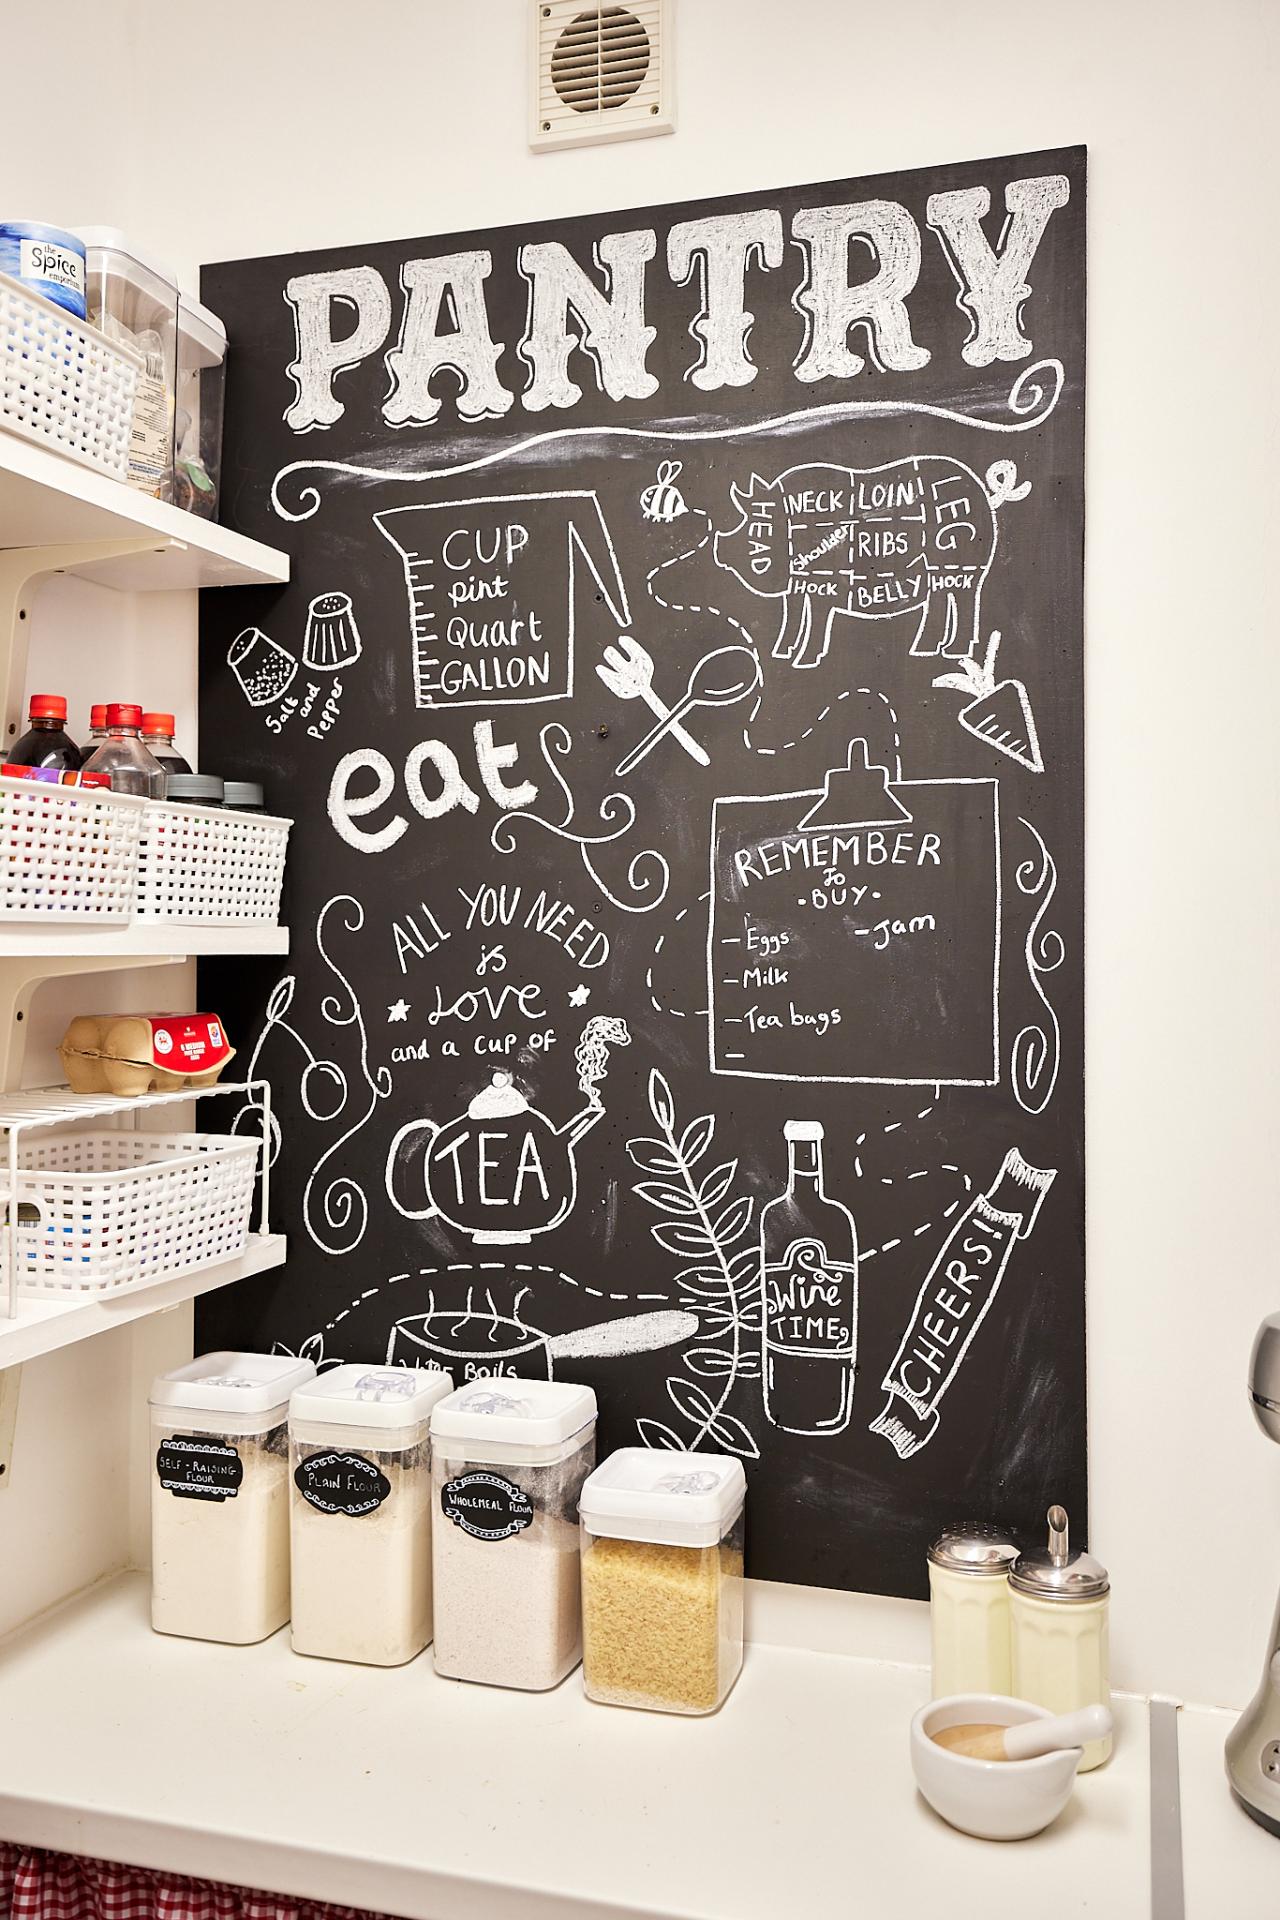 PANTRY
the
Spice
emporium
CUP
pint
Quart
GALLON
HEAD
NECK
LOIN
LEG
Shoulder
RIBS
HOCK
BELLY
HOCK
Salt
and
Pepper
eat
REMEMBER
To
-BUY-
-Eggs
-Jam
-Milk
-Tea bags
-
ALL YOU NEED
is
LOVE
and a cup of
TEA
Wine
TIME
CHEERS!
Boils
SELF-RAISING
FLOUR
PLAIN FLOUR
WHOLEMEAL FLOUR